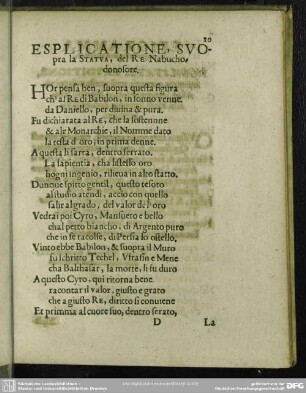 10
ESPLICATIONE, SVO-
pra la STATVA, del RE Nabucho,
donosore.
HOr pensa ben, suopra questa figura
ch' al RE di Babilon, in sonno venne.
da Daniello, per diuina & pura
Fu dichiarata al RE, che la sostennne
& ale Monarchie, il Nomme dato
la testa d'oro; in prima denne.
A questa li sarra, dentro serrato.
La sapientia, cha listesso oro
hogni ingenio, rilieua in alto statto.
Dunque spirto gentil, questo tesoro
al studio atendi, accio con quello
salir al grado, del valor de l'oro
Vedrai poi Cyro, Mansueto e bello
chal petto biancho, di Argento puro
che in se racolse, di Persia so ostello,
Vinto ebbe Babilon, & suopra il Muro
fu schritto Techel, Vfrasin e Mene
cha Balthasar, la morte, li fu duro
A questo Cyro, qui ritorna bene
racontar il valor, giusto e grato
che a giusto RE, diritto si conuene
Et primma al cuore suo, dentro serato,
D La